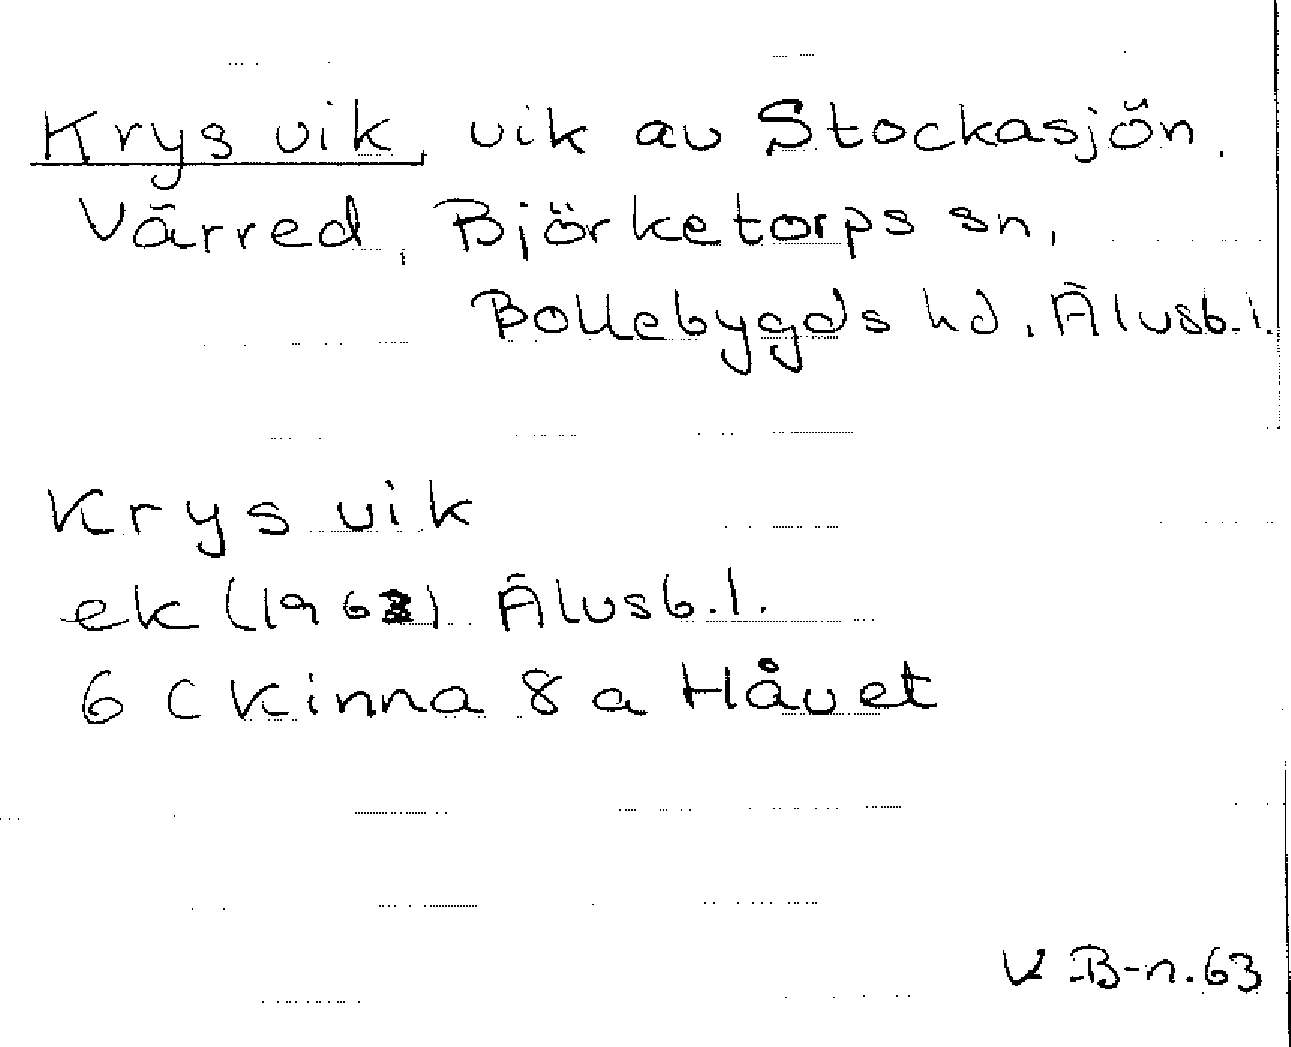 Krysvik, vik av Stockasjön,
Värred, Björketorps sn,
Bollebygds hd, Älvsb.l.
Krysvik
ek (1962) Älvsb.l.
6 C Kinna 8 a Håvet
K B-n.63